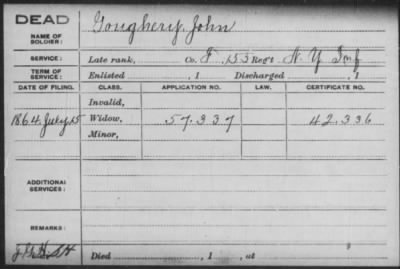 DEAD
NAME OF SOLDIER: Goughery, John
SERVICE: Late rank, Co. F. 155 Reg't N. Y. Inf
TERM OF SERVICE: Enlisted , 1 Discharged , 1
DATE OF FILING. CLASS. APPLICATION NO. LAW. CERTIFICATE NO.
Invalid,
1864. July 15 Widow, 57.337 42.336
Minor,
ADDITIONAL SERVICES:
REMARKS:
Died , 1 , at